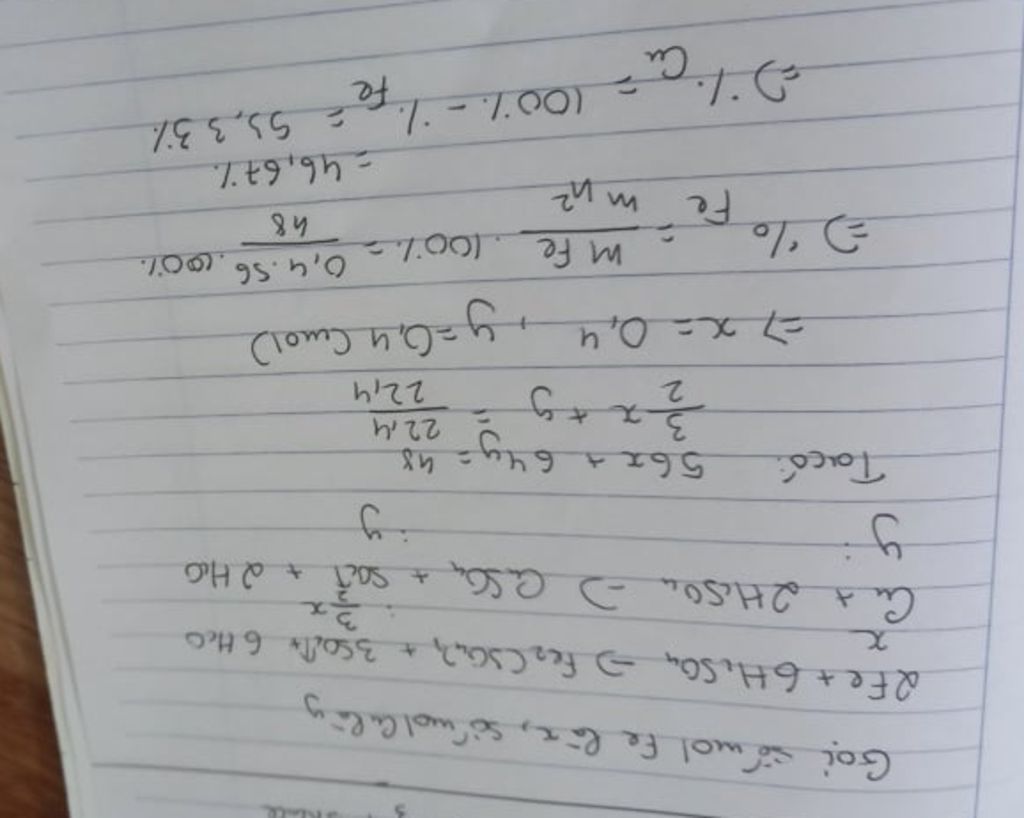 Gọi số mol Fe là x, số mol Cu là y
2Fe + 6H2SO4 => Fe2(SO4)3 + 3SO2↑ + 6H2O
x : 3/2 x
Cu + 2H2SO4 => CuSO4 + SO2↑ + 2H2O
y : : y
Ta có: 56x + 64y = 48
3/2 x + y = 22,4/22,4
=> x = 0,4 , y = 0,4 (mol)
=> % Fe = mFe/m h² . 100% = 0,4.56/48 .100%
= 46,67%
=> % Cu = 100% - % Fe = 53,33%